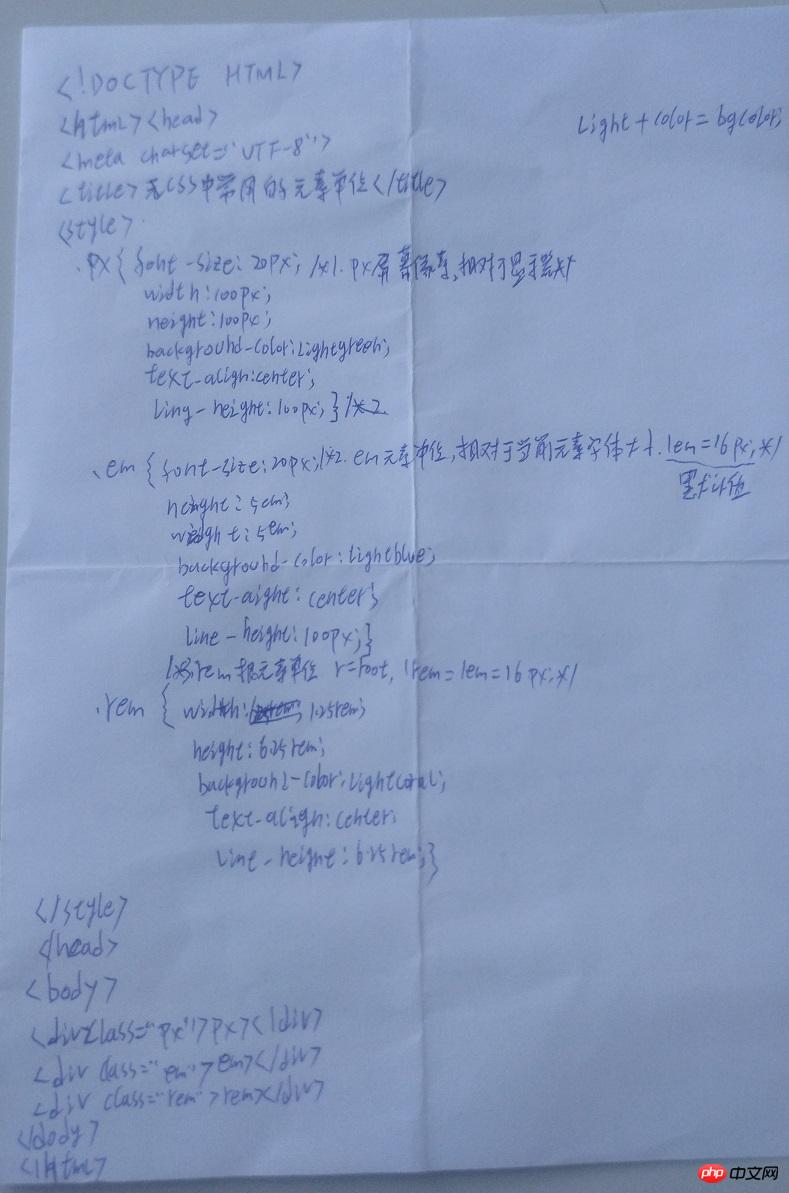 <!DOCTYPE HTML>
<html><head>
Light + color = bgcolor;
<meta charset="UTF-8">
<title>css中常用的元素单位</title>
<style>
.px{ font-size: 20px; /*1. px屏幕像素,相对于显示器
width:100px;
height:100px;
background-color:lightgreen;
text-align:center;
ling-height:100px;}
.em{ font-size:20px;/*2. em元素单位,相对于当前元素字体大小.1em=16px;*/
默认值
height:5em;
:5em;
background-color:lightblue;
text-aight:center;
line-height:100px;}
rem根元素单位 r=root, 1rem=1em=16px;*/
.rem { width: 1.25rem;
height:6.25rem;
background-color:lightcoral;
text-align:center;
line-height:6.25rem;}
</style>
</head>
<body>
<div class="px">px></div>
<div class="em">em></div>
<div class="rem">rem></div>
</body>
</html>
php 中文网